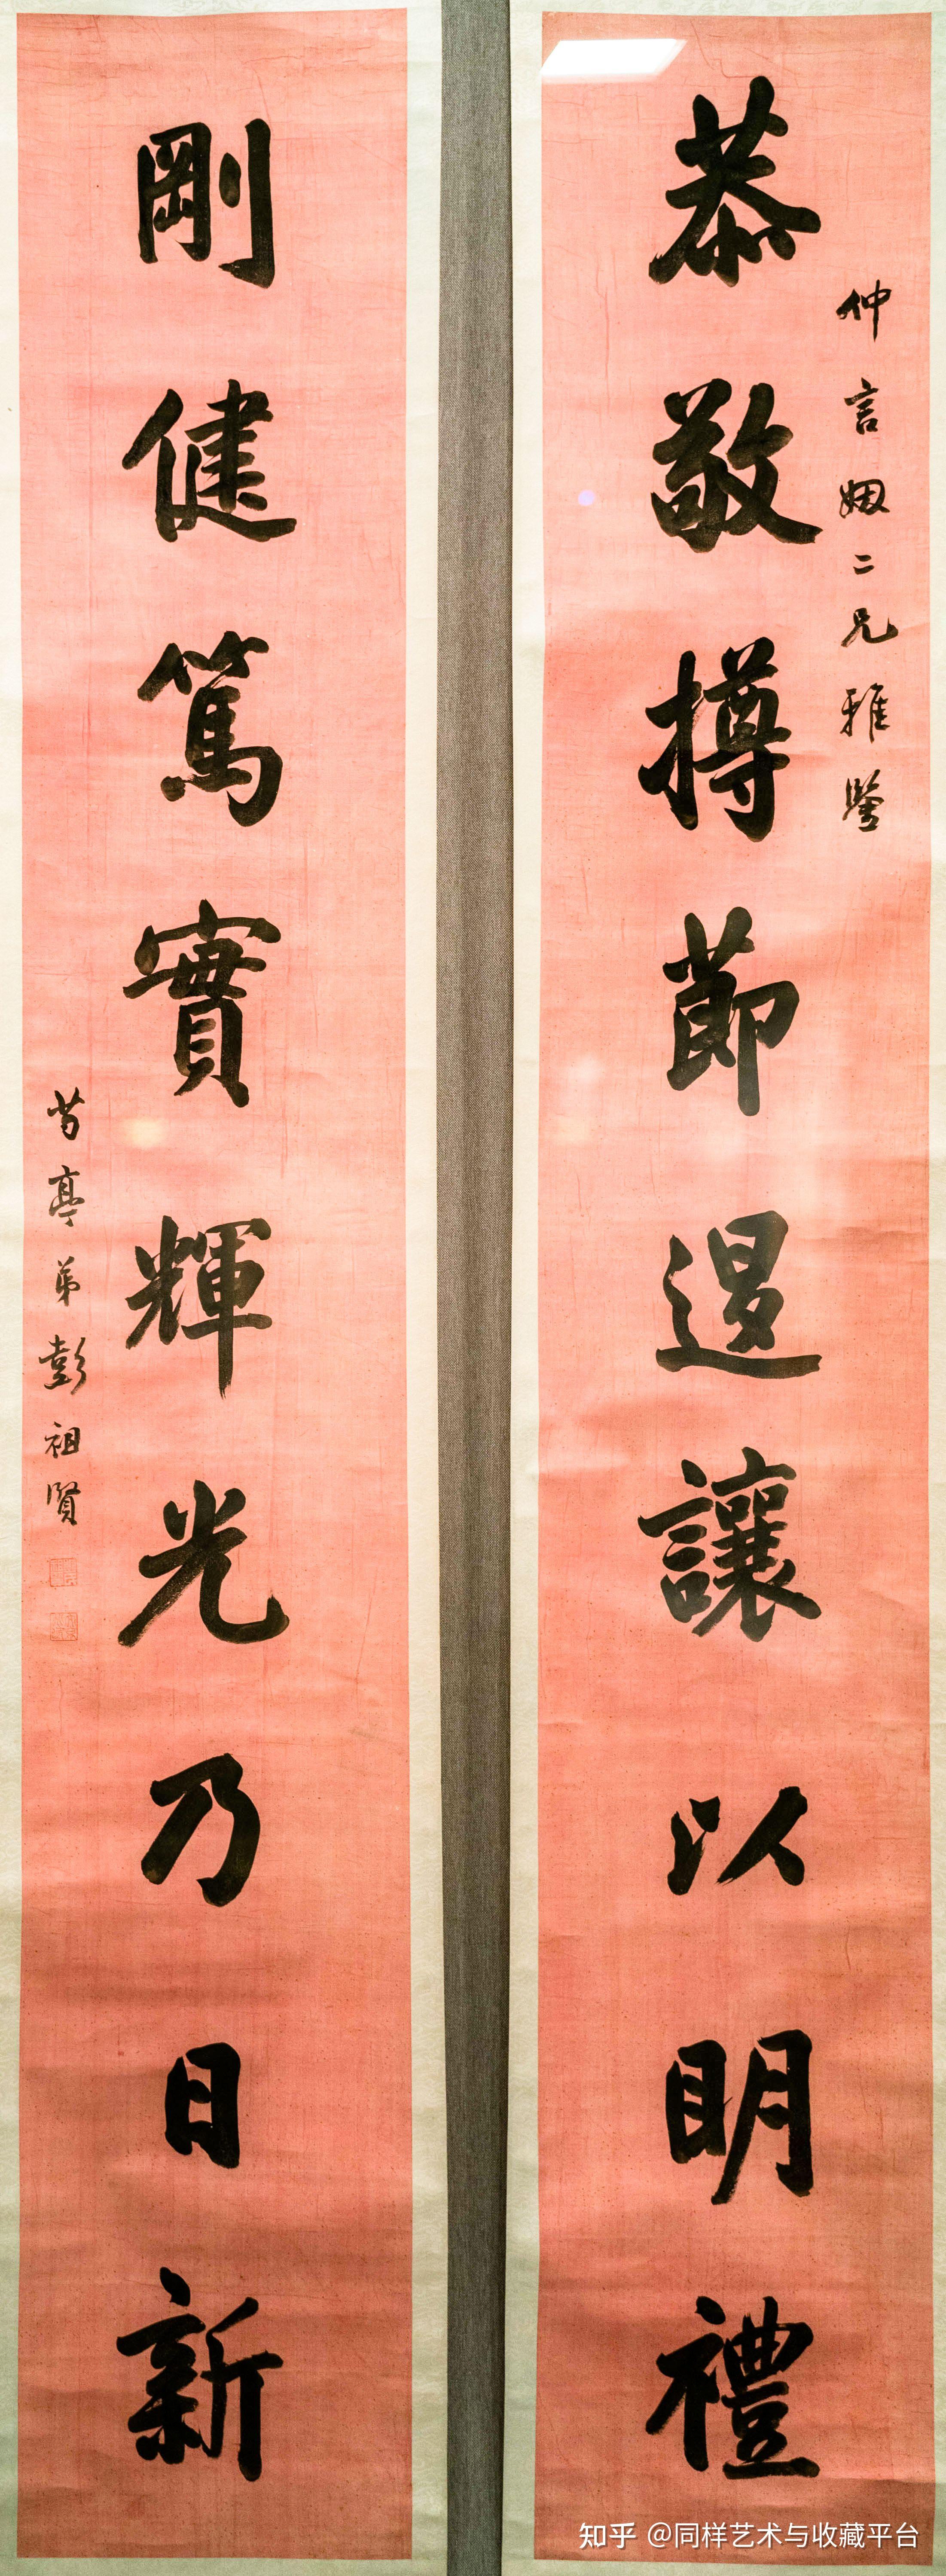 恭敬撙節退讓以明禮
仲言姻二兄雅鑒
剛健篤實輝光乃日新
芍亭弟彭祖賢
知乎 @同样艺术与收藏平台